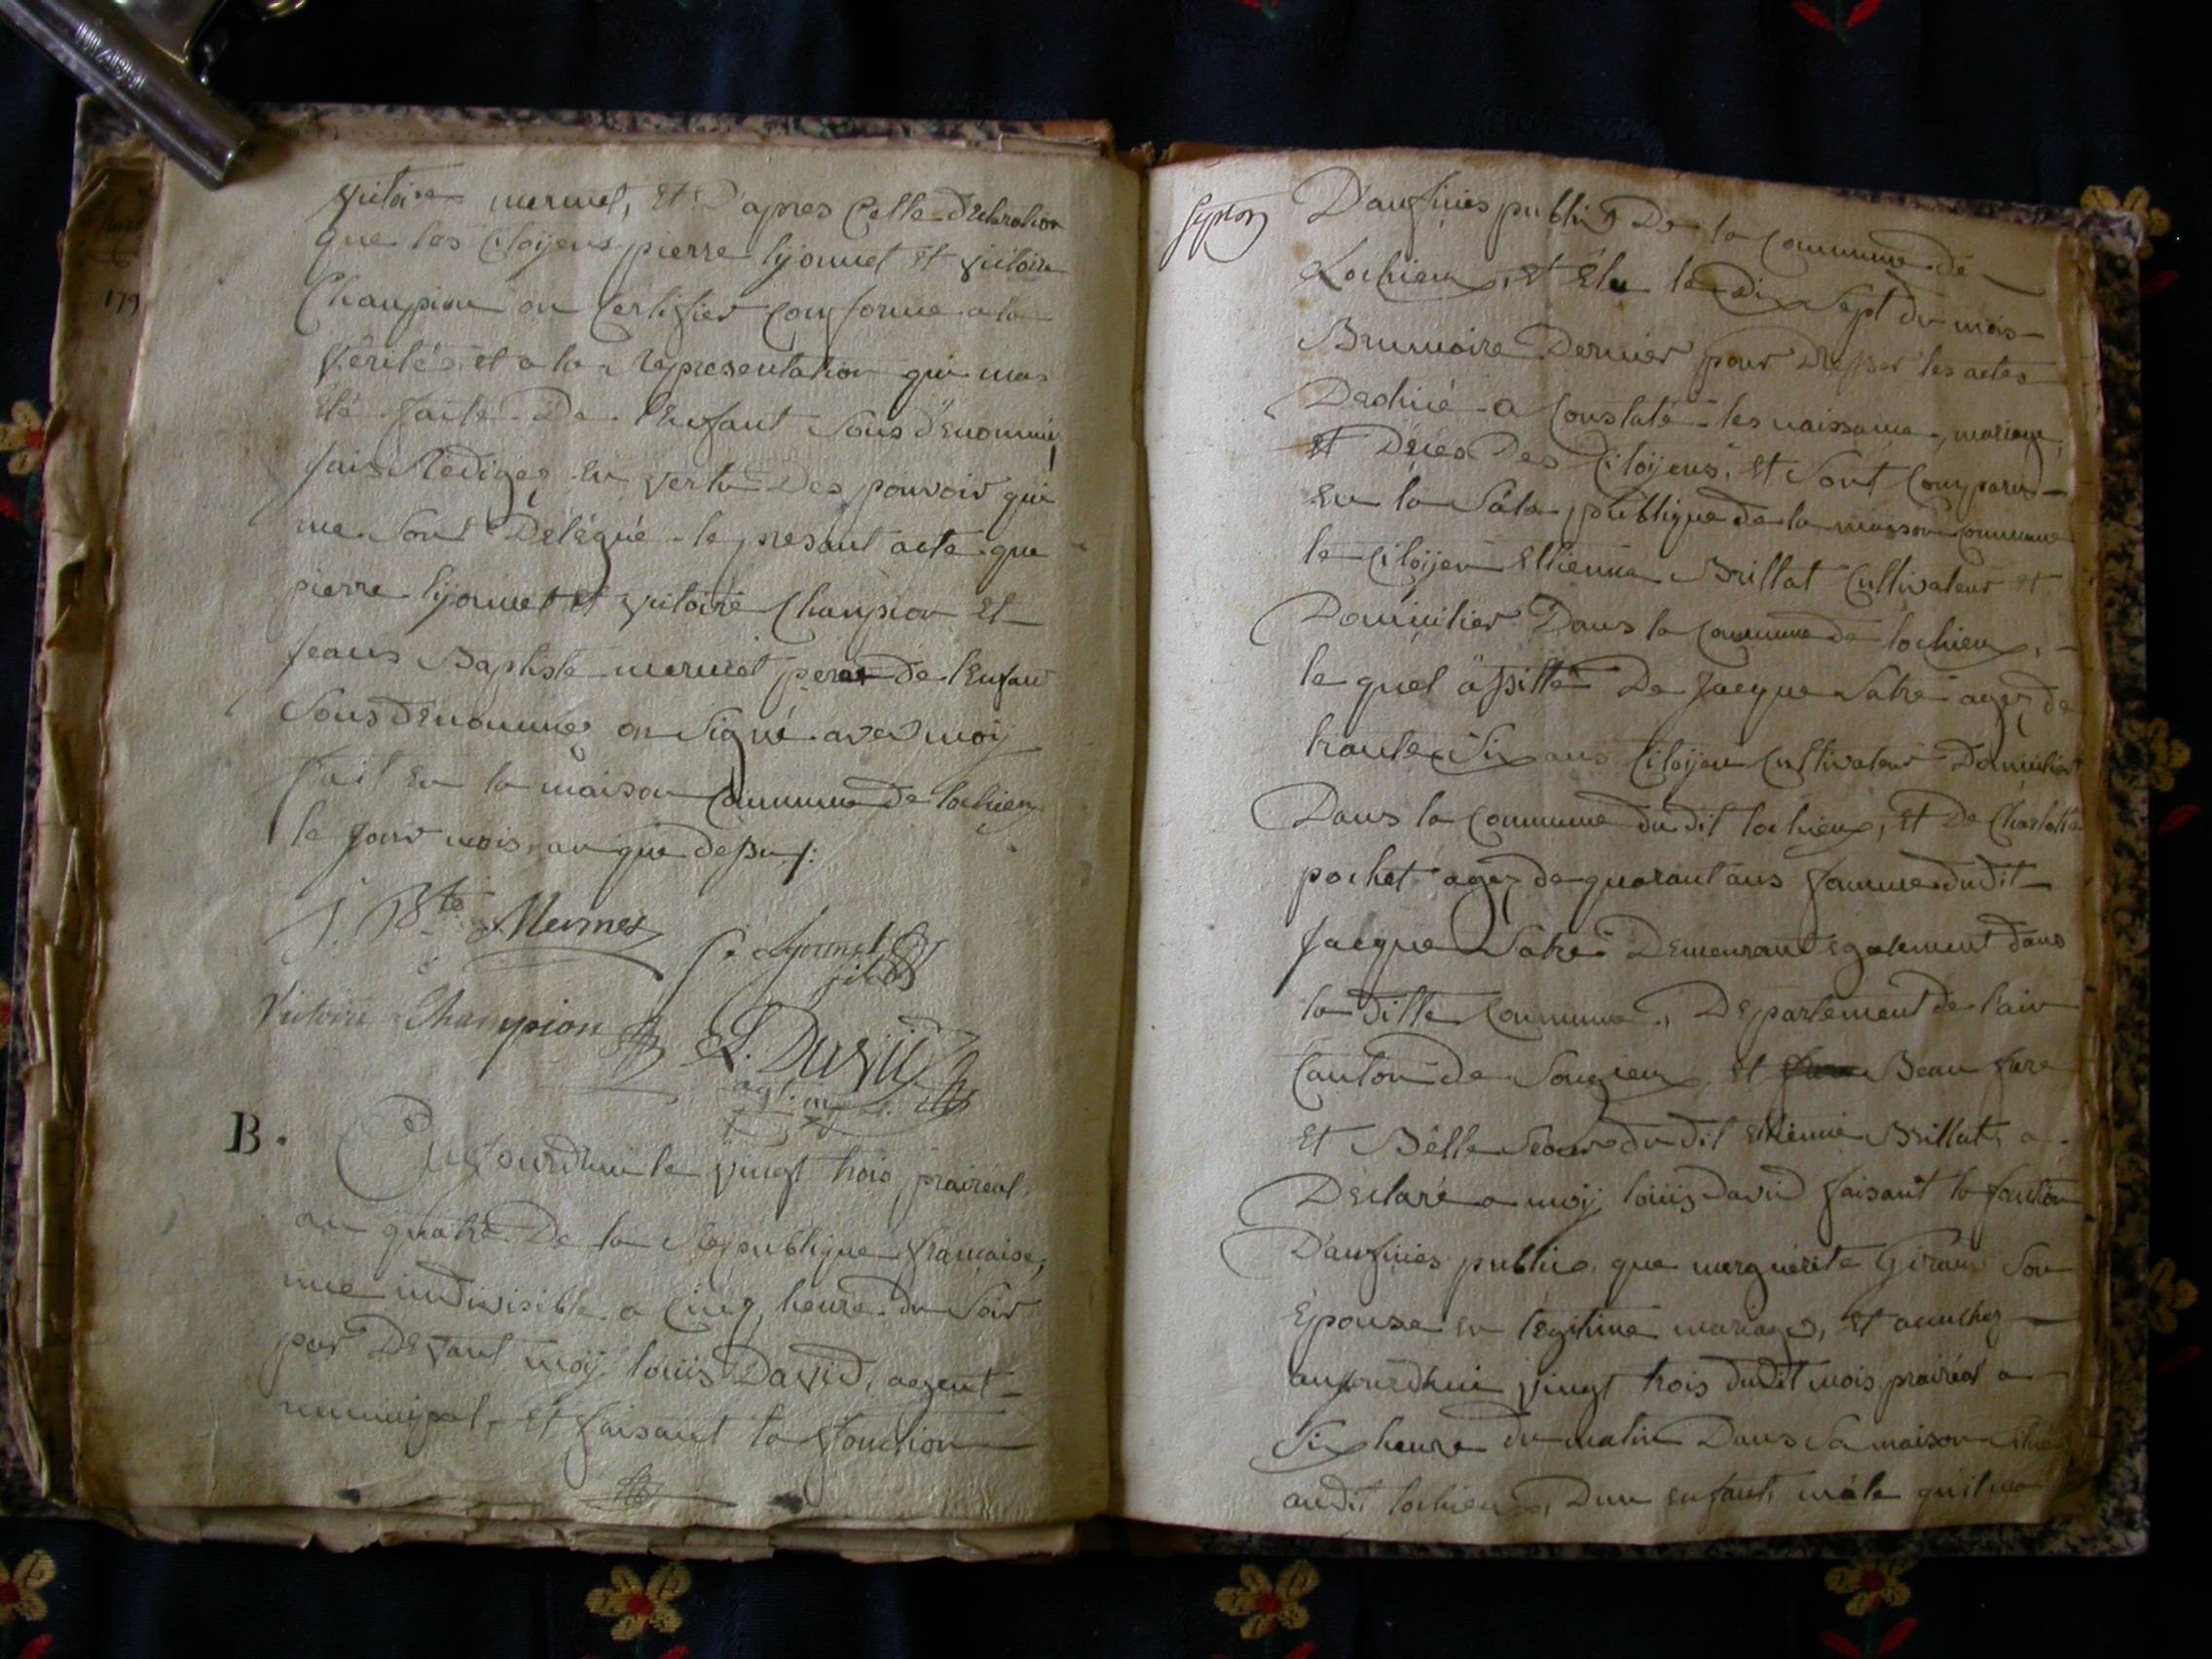 Vitoire mermet, Et D'apres Celle Declaration
que les Citoijens pierre lijonnet Et Vitoire
Champion on Certifier Conforme a la
Vérités, et a la Representation qui mas
Eté faite De l'Enfant Sous dénommé,
fais Rédiger En Vertu Des pouvoir qui
me Sont Délégué le presant acte que
pierre lijonnet et Vitoire Champion Et
jeans Baptiste mermet perer de l'Enfant
Sous denommer on Signé avec moij
fait En la maison Commune de lochieu
le jour mois, an que dessus /:
J. Bte Mermet
P. Lyonnet
fils
Victoire Champion
L. David
agt. m.
B.
Aujourdhui le Vingt trois prairéal
an quatre De la République francaise,
une indivisible a Cinq heure du Soir
par Devant moij louis David, agent
municipal, et faisant la fonction
Septon
D'aufiuies public De la Commune de
Lochieu, et Elu le Dix Sept du mois
Brumoire Dernier pour Dresser les actes
Destiné a Constaté les naissance, mariage,
et Déces Des Citoijens, et Sont Comparus
En la Sale publique de la maison Commune
le Citoijen Ettienne Brillat Cultivateur et
Domicilier Dans la Commune de lochieu,
le quel assitté De Jacque Satre agez de
trante Six ans Citoijen Cultivateur Domicilier
Dans la Commune du dit lochieu, Et De Charlotte
pochet agez de quarant ans famme dudit
Jacque Satre Demeurant Egalement dans
la ditte Commune, Departement de l'ain
Canton de Songieu, et Beau frere
Et Bélle Seour du dit Ettienne Brillat, a
Déclaré a moij louis david faisant la fonction
D'aufiuies public, que marguérite Giraud Son
Épouse En legitime mariage, Et acuchez
aujourdhui Vingt trois dudit mois prairéal a
Six heure du matin Dans Sa maison Situé
audit lochieu, Dun enfant, mâle quil ma